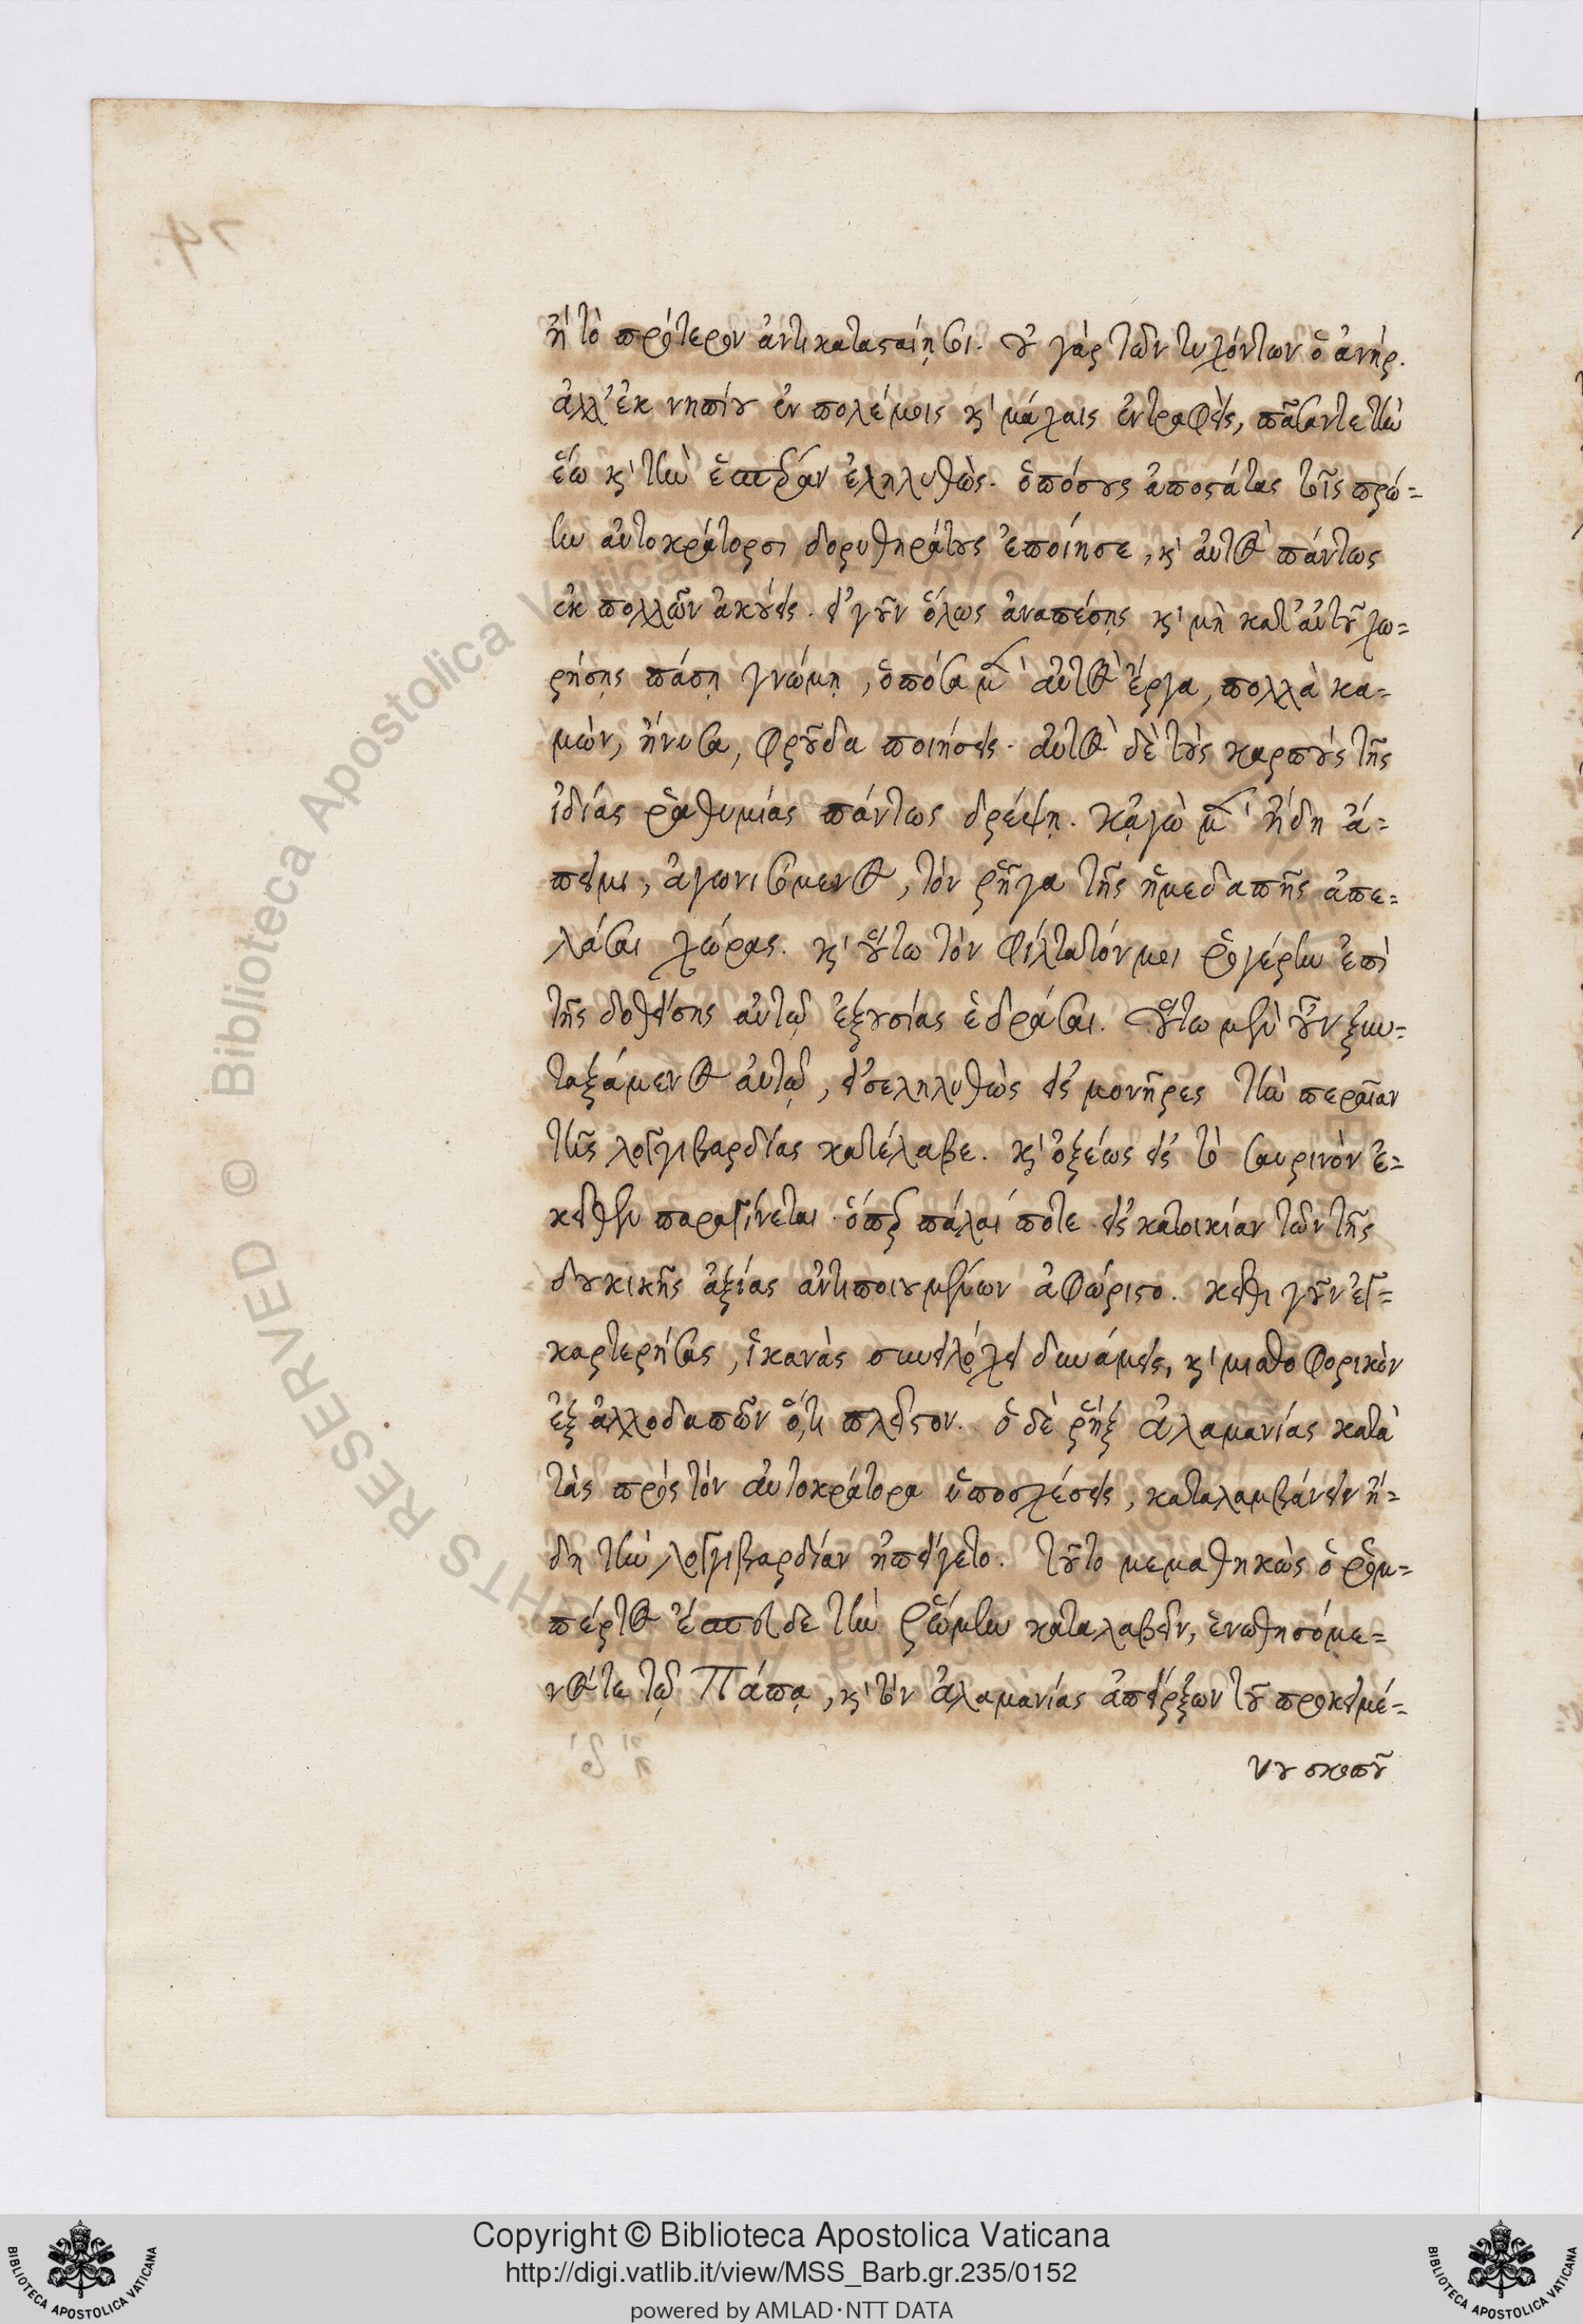 ἢ τὸ πρότερον ἀντικαταστήσει. οὐ γὰρ τῶν τυχόντων ὁ ἀνήρ.
ἀλλ' ἐκ νηπίου ἐν πολέμοις κ' μάχαις ἐντραφεὶς, πᾶσάν τε τὴν
ἕω κ' τὴν ἑσπέραν ἐληλυθὼς. ὁπόσους ἀποστάτας τοῖς πρώ=
ην αὐτοκράτορσι δορυθηράτους ἐποίησε, κ' αὐτὸς πάντως
ἐκ πολλῶν ἀκούεις. εἰ γοῦν ὅλως ἀναπέσῃς κ' μὴ κατ' αὐτοῦ χω=
ρήσῃς πάσῃ γνώμῃ, ὁπόσα μὲν αὐτὸς ἔργα, πολλὰ κα=
μὼν, ἤνυσα, φροῦδα ποιήσεις. αὐτὸς δὲ τοὺς καρποὺς τῆς
ἰδίας ῥαθυμίας πάντως δρέψῃ. κἀγὼ μὲν ἤδη ἄ=
πειμι, ἀγωνισόμενος, τὸν ῥῆγα τῆς ἡμεδαπῆς ἀπε=
λάσαι χώρας. κ' οὕτω τὸν φίλτατόν μοι ῥογέρην ἐπὶ
τῆς δοθείσης αὐτῷ ἐξουσίας ἑδράσαι. οὕτω μὲν οὖν ξυν=
ταξάμενος αὐτῷ, εἰσεληλυθὼς εἰς μονῆρες τὴν περαίαν
τῆς λογγιβαρδίας κατέλαβε. κ' ὀξέως εἰς τὸ σαυρινὸν ἐ=
κεῖθεν παραγίνεται. ὅπερ πάλαι ποτε εἰς κατοικίαν τῶν τῆς
δουκικῆς ἀξίας ἀντιποιουμένων ἀφώριστο. κεῖθι γοῦν ἐγ=
καρτερήσας, ἱκανὰς συνειλόχει δυνάμεις, κ' μισθοφορικὸν
ἐξ ἀλλοδαπῶν ὅ,τι πλεῖστον. ὁ δὲ ῥὴξ ἀλαμανίας κατὰ
τὰς πρὸς τὸν αὐτοκράτορα ὑποσχέσεις, καταλαμβάνειν ἤ=
δη τὴν λογγιβαρδίαν ἠπείγετο. τοῦτο μεμαθηκὼς ὁ ῥομ=
πέρτος ἔσπευδε τὴν ῥώμην καταλαβεῖν, ἑνωθησόμε=
νός τε τῷ Πάπᾳ, κ' τὸν ἀλαμανίας ἀπείρξων τοῦ προκειμέ=
νου σκοποῦ
74
Copyright © Biblioteca Apostolica Vaticana
http://digi.vatlib.it/view/MSS_Barb.gr.235/0152
powered by AMLAD·NTT DATA